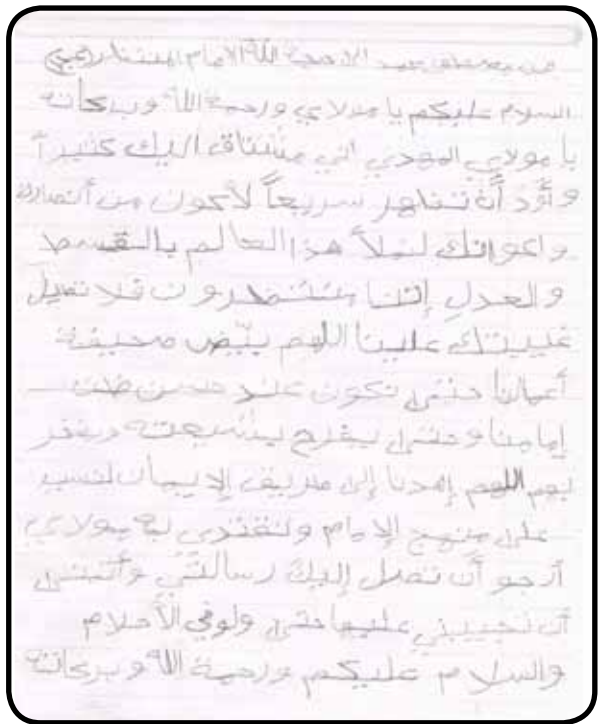 الامام المنتظر
السلام عليكم يا مولاي ورحمة الله وبركاته
يا مولاي المهدي اني مشتاق اليك كثيراً
وأود أن تظهر سريعاً لأكون من أنصارك
واعوانك لنملأ هذا العالم بالقسط
والعدل إننا منتظرون فلا تطيل
غيبتك علينا اللهم بيّض صحيفة
أعمالنا حتى نكون عند حسن ظن
إمامنا وحتى يفرح بشيعته ويفخر
بهم اللهم إهدنا إلى طريق الإيمان لنسير
على منهج الإمام ولنقتدي به مولاي
أرجو أن تصل إليك رسالتي وأتمنى
أن تجيبني عليها حتى ولو في الأحلام
والسلام عليكم ورحمة الله وبركاته